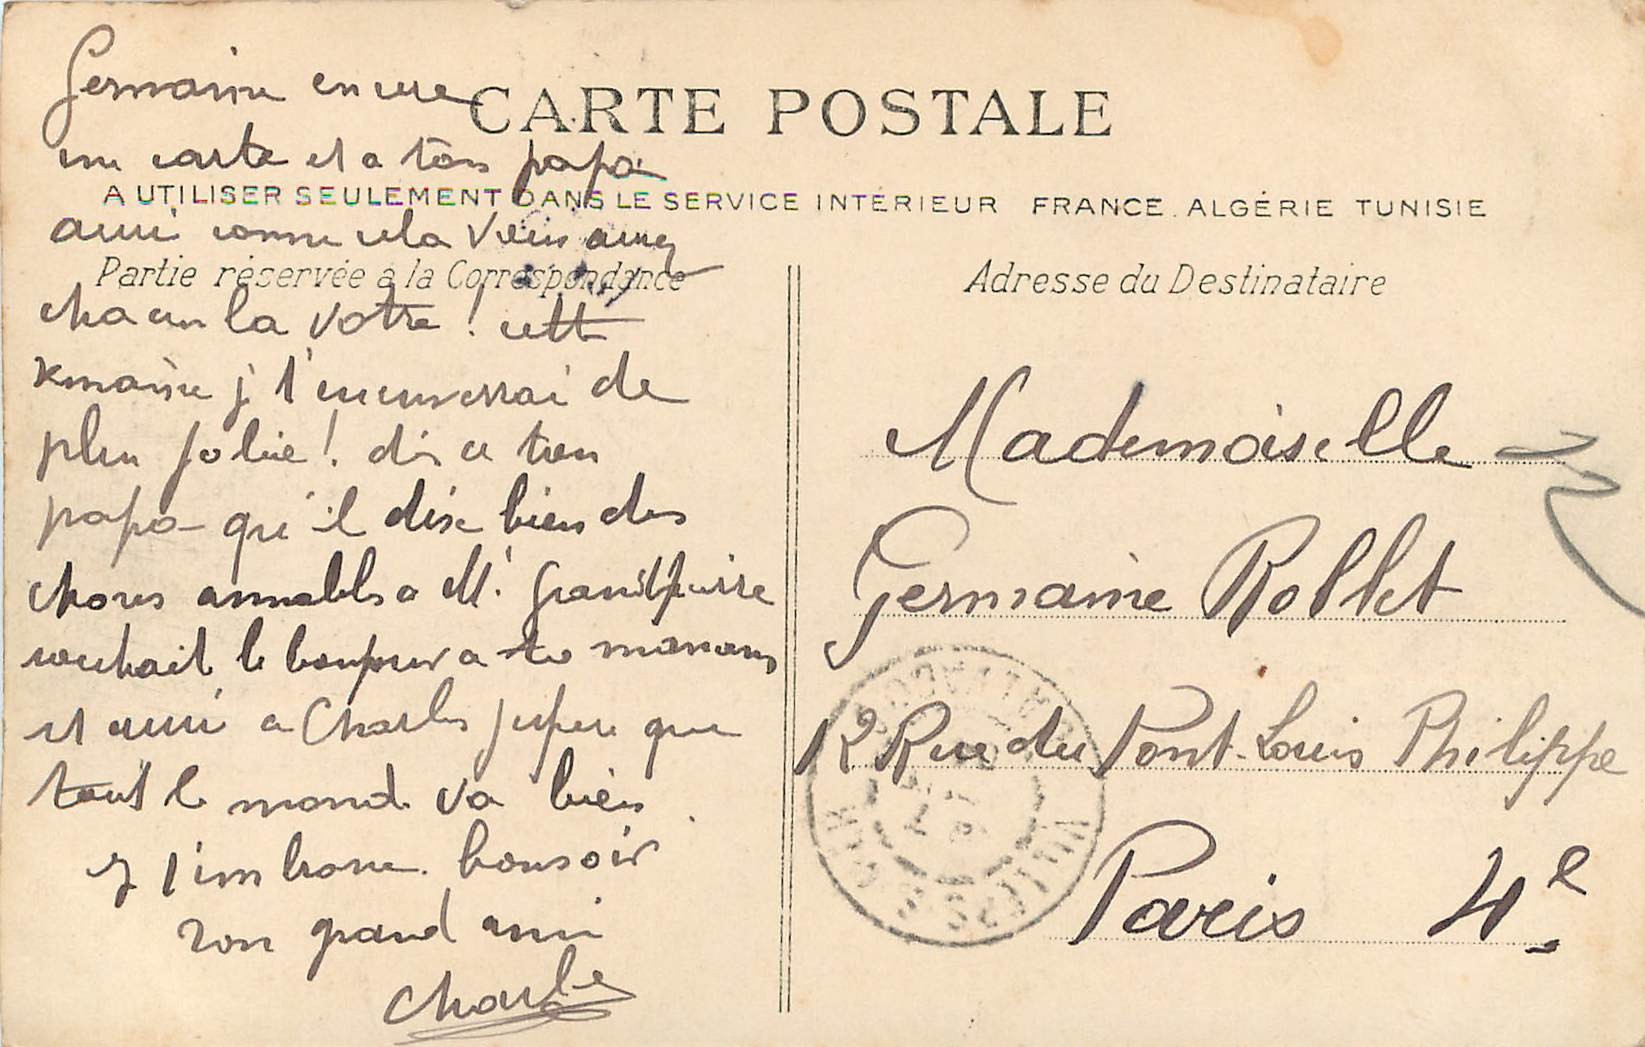 CARTE POSTALE
A UTILISER SEULEMENT DANS LE SERVICE INTÉRIEUR FRANCE. ALGÉRIE TUNISIE
Partie réservée à la Correspondance
Germaine encore
une carte et a ton papa
aussi comme cela vous aurez
chacun la votre ! cette
semaine je t'enverrai de
plus jolie ! dis a ton
papa qu'il dise bien des
choses aimables a M.
souhait le bonjour a ta maman
et aussi a Charles j'espere que
tout le monde va bien
je t'embrasse. bonsoir
ton grand ami
Charles
Adresse du Destinataire
Mademoiselle
Germaine Rollet
12 Rue du Pont-Louis Philippe
Paris 4e